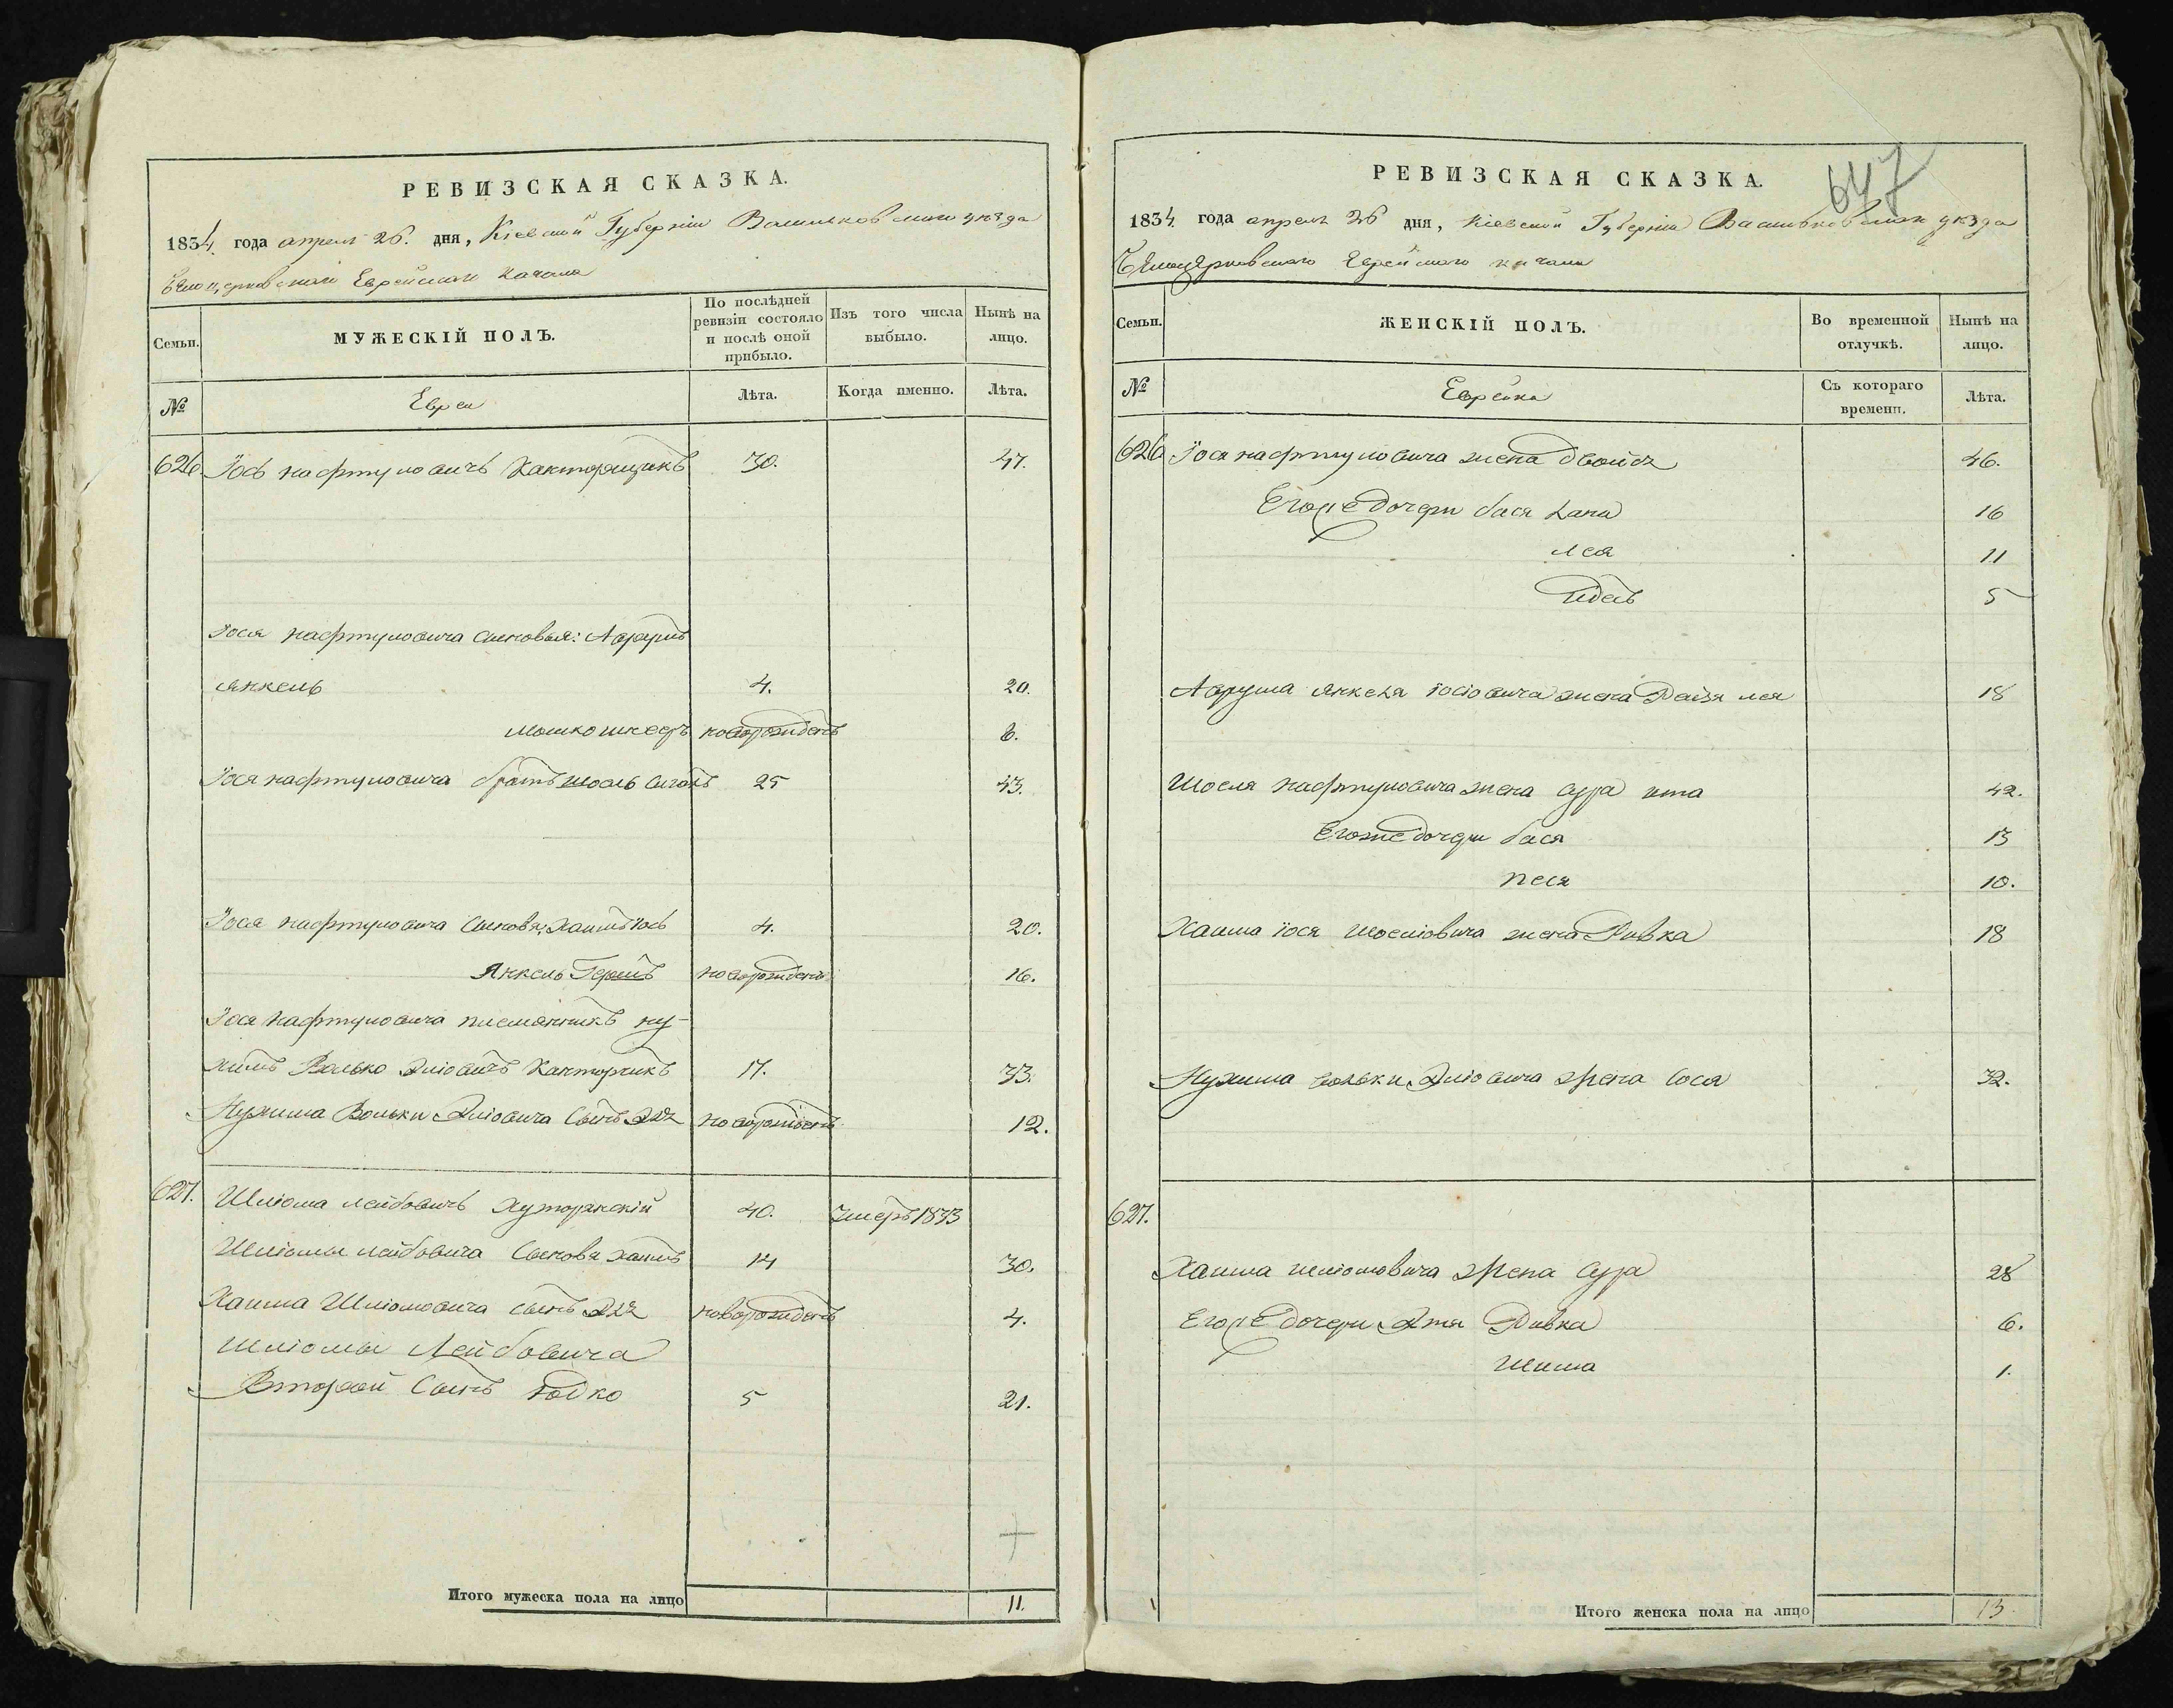 РЕВИЗСКАЯ СКАЗКА.
1834 года апреля 26. дня, Кіевской Губерніи Васильковскаго уѣзда
Бѣлоцерковскаго Еврейскаго Кагала
Семьи.
МУЖЕСКІЙ ПОЛЪ.
По послѣдней ревизіи состояло и послѣ оной прибыло.
Изъ того числа выбыло.
Нынѣ на лицо.
№
Евреи
Лѣта.
Когда именно.
Лѣта.
626. Іось Нафтуловичъ 30. 47.
Іося Нафтуловича сыновья: Аврумъ
Янкель 4. 20.
Мошко новорожденъ 6.
Іося Нафтуловича братъ Шоель 25 43.
Іося Нафтуловича сыновя: Хаимъ Іось 4. 20.
Янкель Гершъ новорожденъ 16.
Іося Нафтуловича племянникъ Ну-
химъ Волько Эліовичъ 17. 33.
Нухима Вольки Эліовича сынъ новорожденъ 12.
627. Шліома Лейбовичъ Хуторянскій 40. умеръ 1833
Шліомы Лейбовича сыновя Хаимъ 14 30.
Хаима Шліомовича сынъ новорожденъ 4.
Шліомы Лейбовича
Второй сынъ Юдко 5 21.
Итого мужеска пола на лицо 11.
647
РЕВИЗСКАЯ СКАЗКА.
1834. года апреля 26 дня, Кіевской Губерніи Васильковскаго уѣзда
Бѣлоцерковскаго Еврейскаго Кагала
Семьи.
ЖЕНСКІЙ ПОЛЪ.
Во временной отлучкѣ.
Нынѣ на лицо.
№
Еврейки
Съ котораго времени.
Лѣта.
626 Іося Нафтуловича жена Двойся 46.
Егоже дочери Бася Хана 16
Лея 11
5
Аврума Янкеля Іосіовича жена Рейзя Лея 18
Шоеля Нафтуловича жена Сура Ита 42.
Егоже дочери Бася 13
Песя 10.
Хаима Іося Шоеліовича жена Ривка 18
Нухима Вольки Эліовича жена Сося 32.
627.
Хаима Шліомовича жена Сура 28
Егоже дочери Ривка 6.
Шима 1.
Итого женска пола на лицо 13.